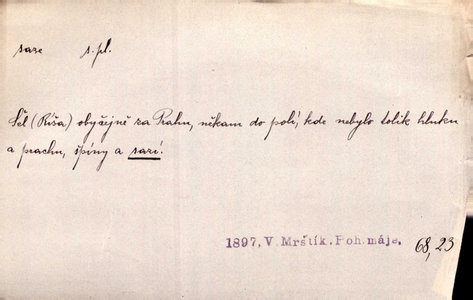 saze s. pl.
Šel (Ríša) obyčejně za Prahu, někam do polí, kde nebylo tolik hluku
a prachu, špíny a sazí.
1897, V. Mrštík. Poh. máje. 68, 23